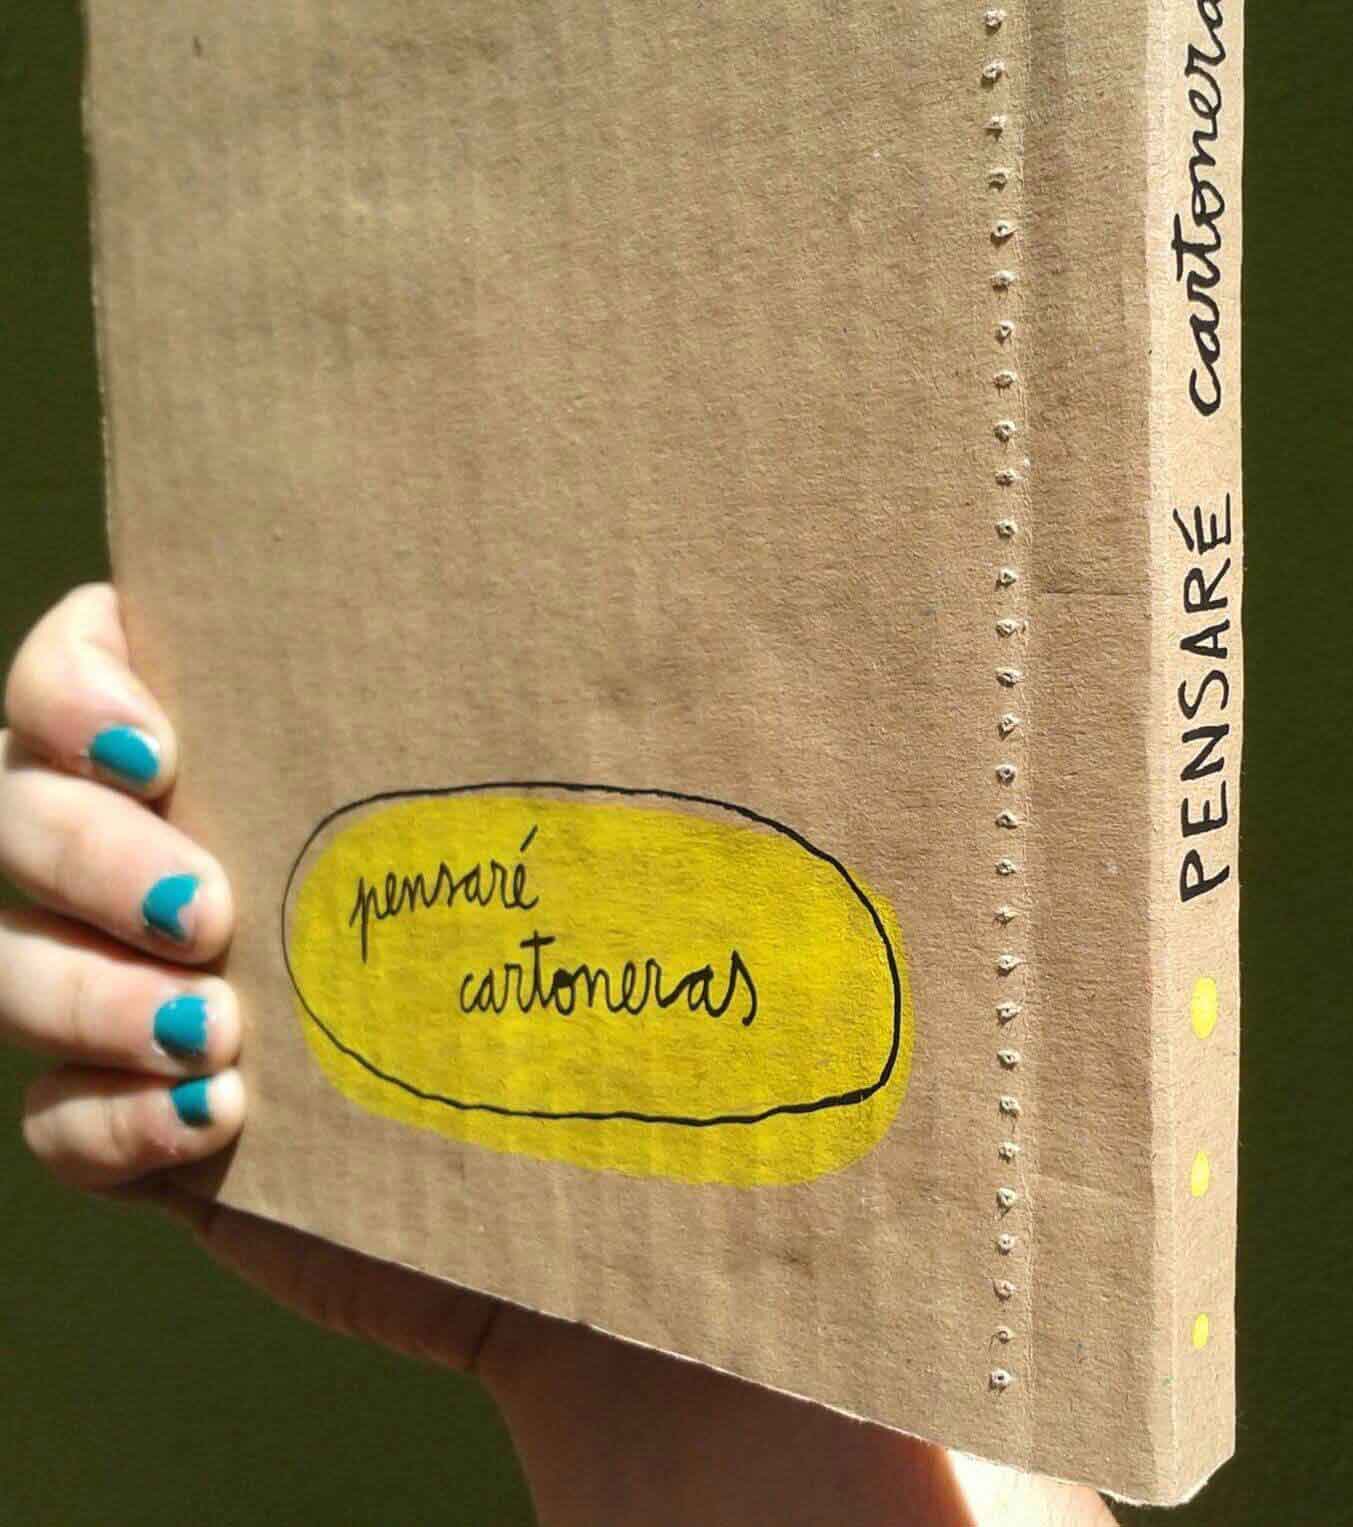 pensaré
cartoneras
PENSARÉ cartonera